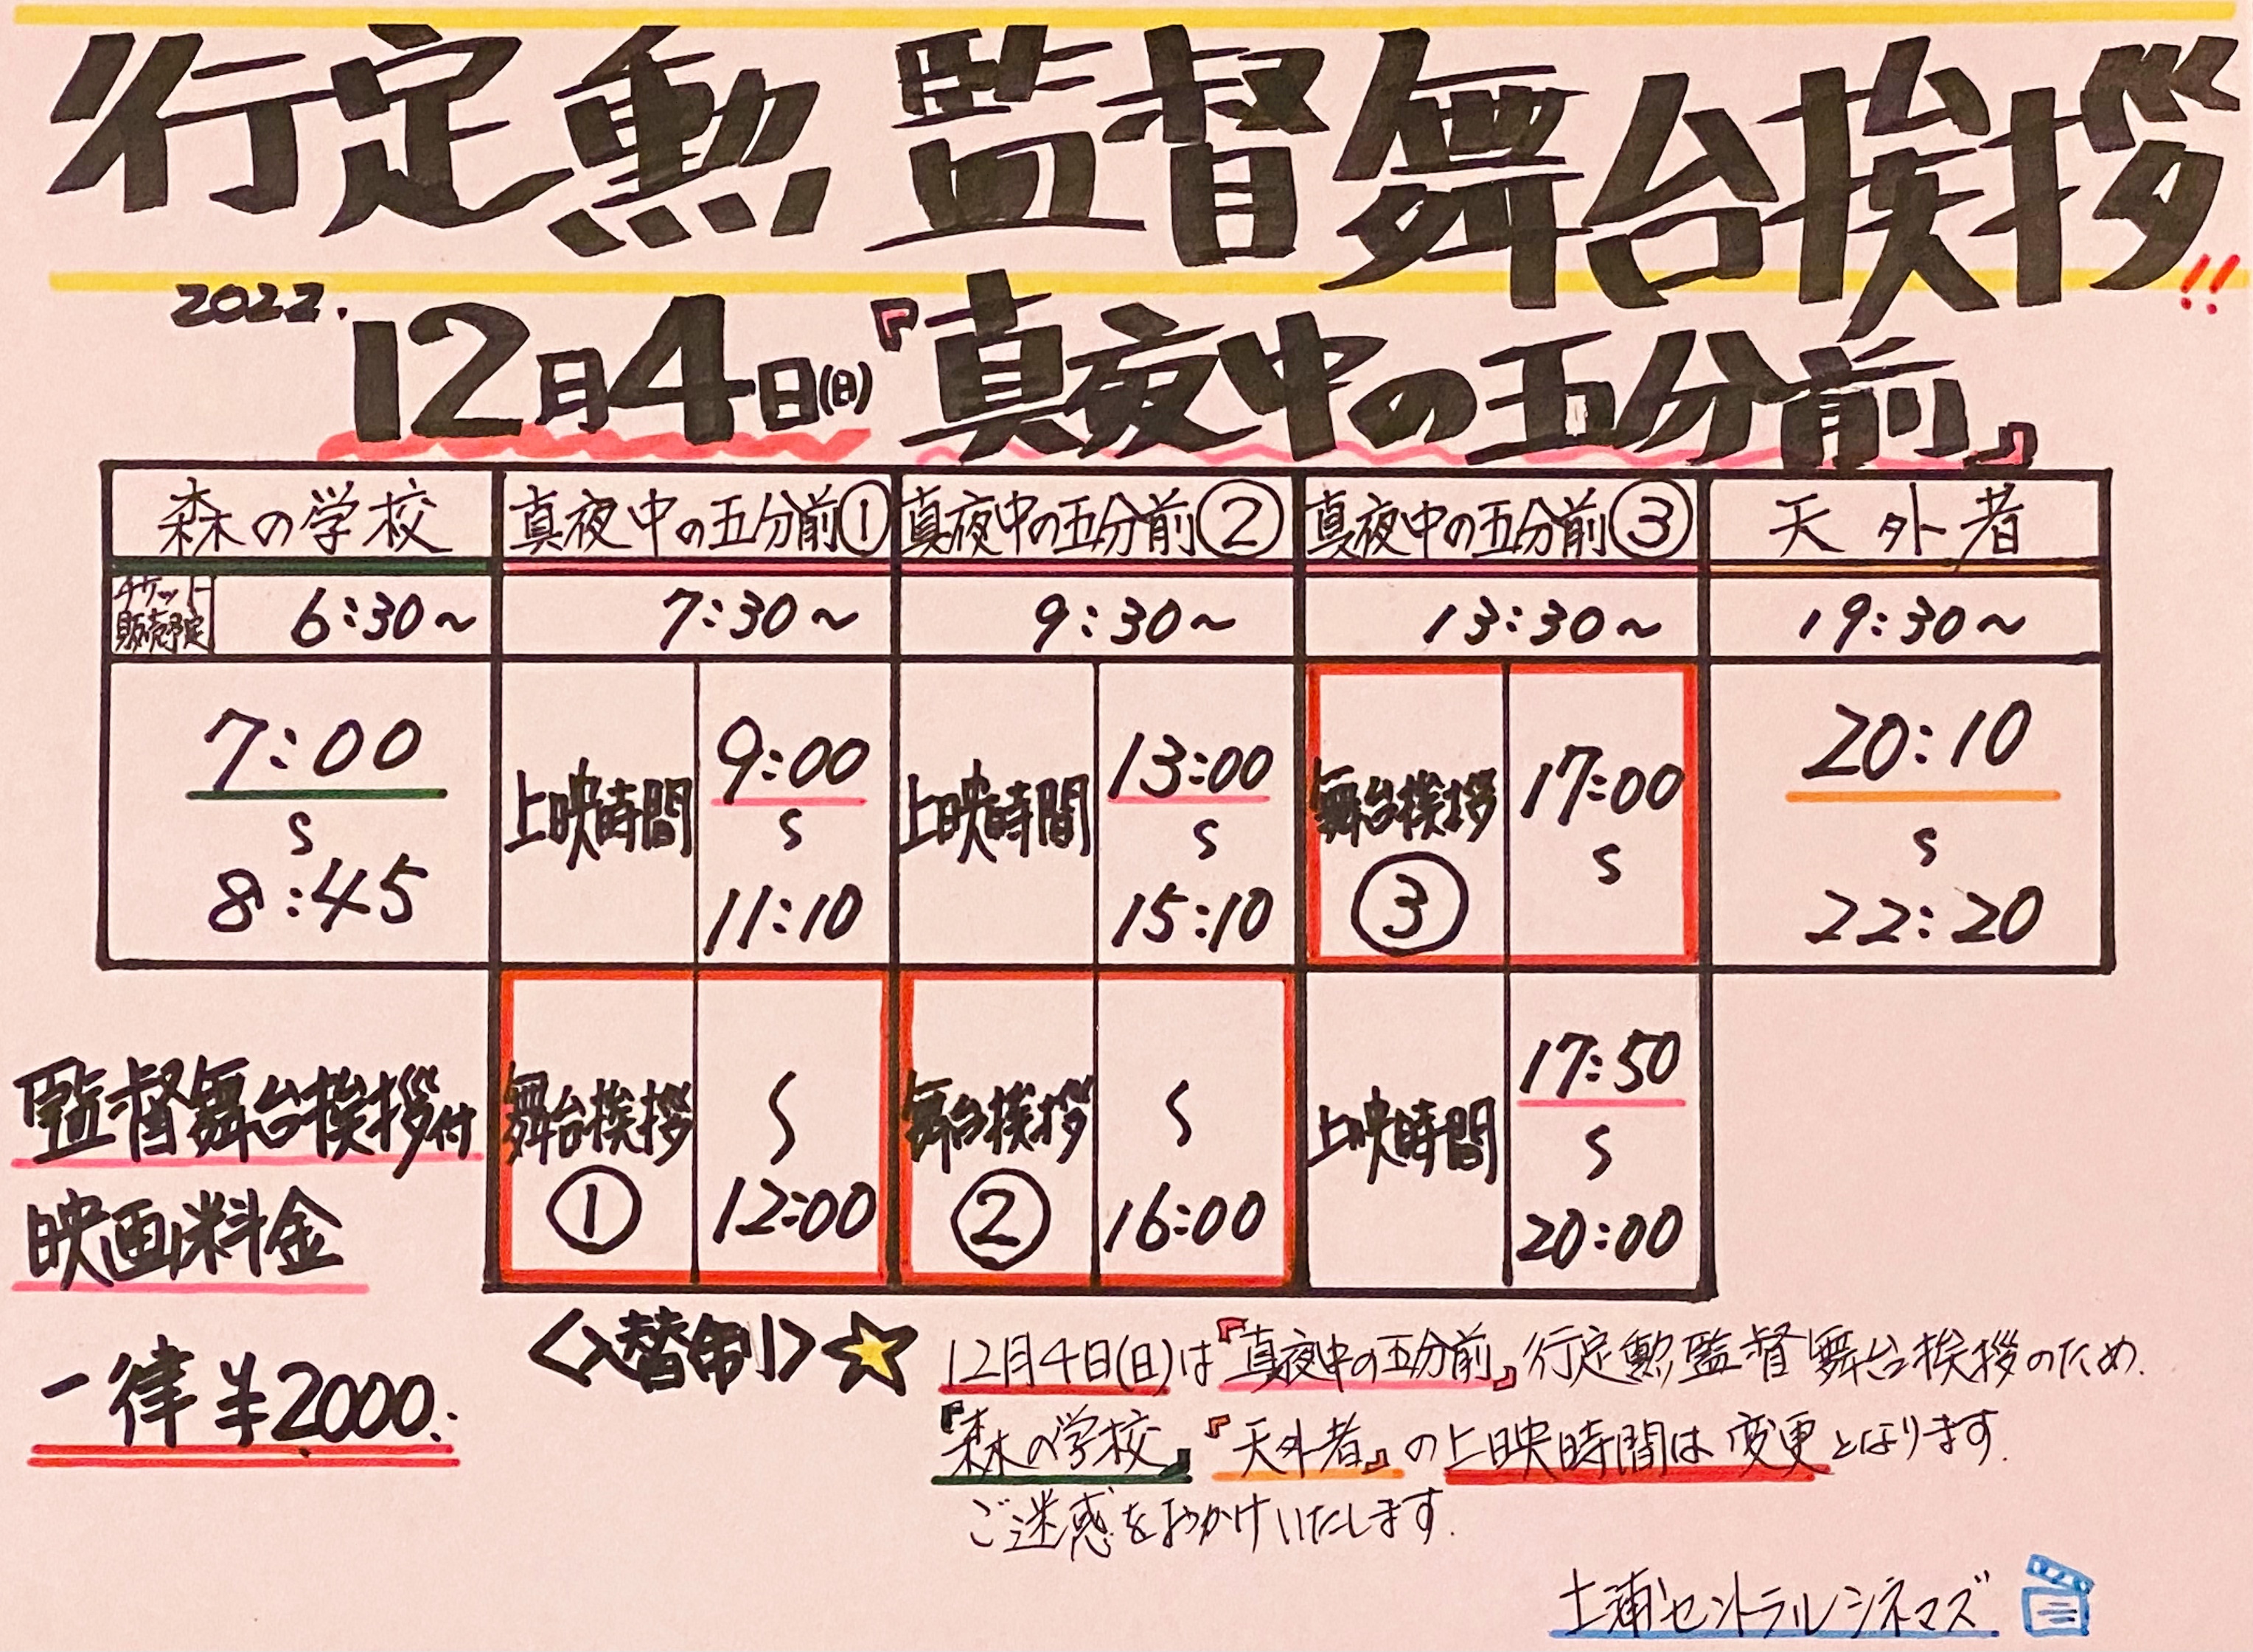 行定勲 監督舞台挨拶!!
2022. 12月4日(日)『真夜中の五分前』
森の学校 真夜中の五分前① 真夜中の五分前② 真夜中の五分前③ 天外者
チケット
販売予定 6:30〜 7:30〜 9:30〜 13:30〜 19:30〜
7:00
〜
8:45
上映時間 9:00
〜
11:10
上映時間 13:00
〜
15:10
舞台挨拶
③ 17:00
〜
20:10
〜
22:20
舞台挨拶
① 〜
12:00
舞台挨拶
② 〜
16:00
上映時間 17:50
〜
20:00
監督舞台挨拶付
映画料金
一律¥2000.
<入替制>☆
12月4日(日)は『真夜中の五分前』行定勲監督舞台挨拶のため.
『森の学校』『天外者』の上映時間は変更となります.
ご迷惑をおかけいたします.
土浦セントラルシネマズ